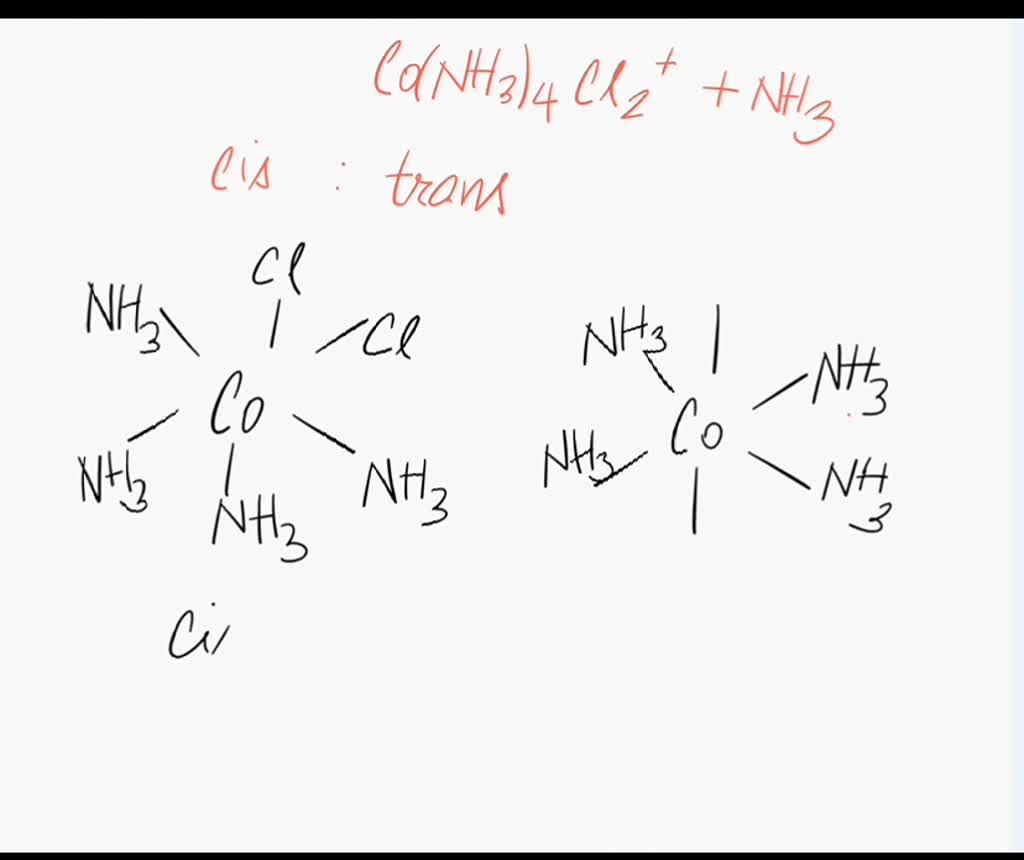 Co(NH3)4 Cl2+ + NH3
cis : trans
Cl
NH3 Cl
Co
NH3 NH3
NH3
NH3 NH3
Co
NH3 NH3
Cis